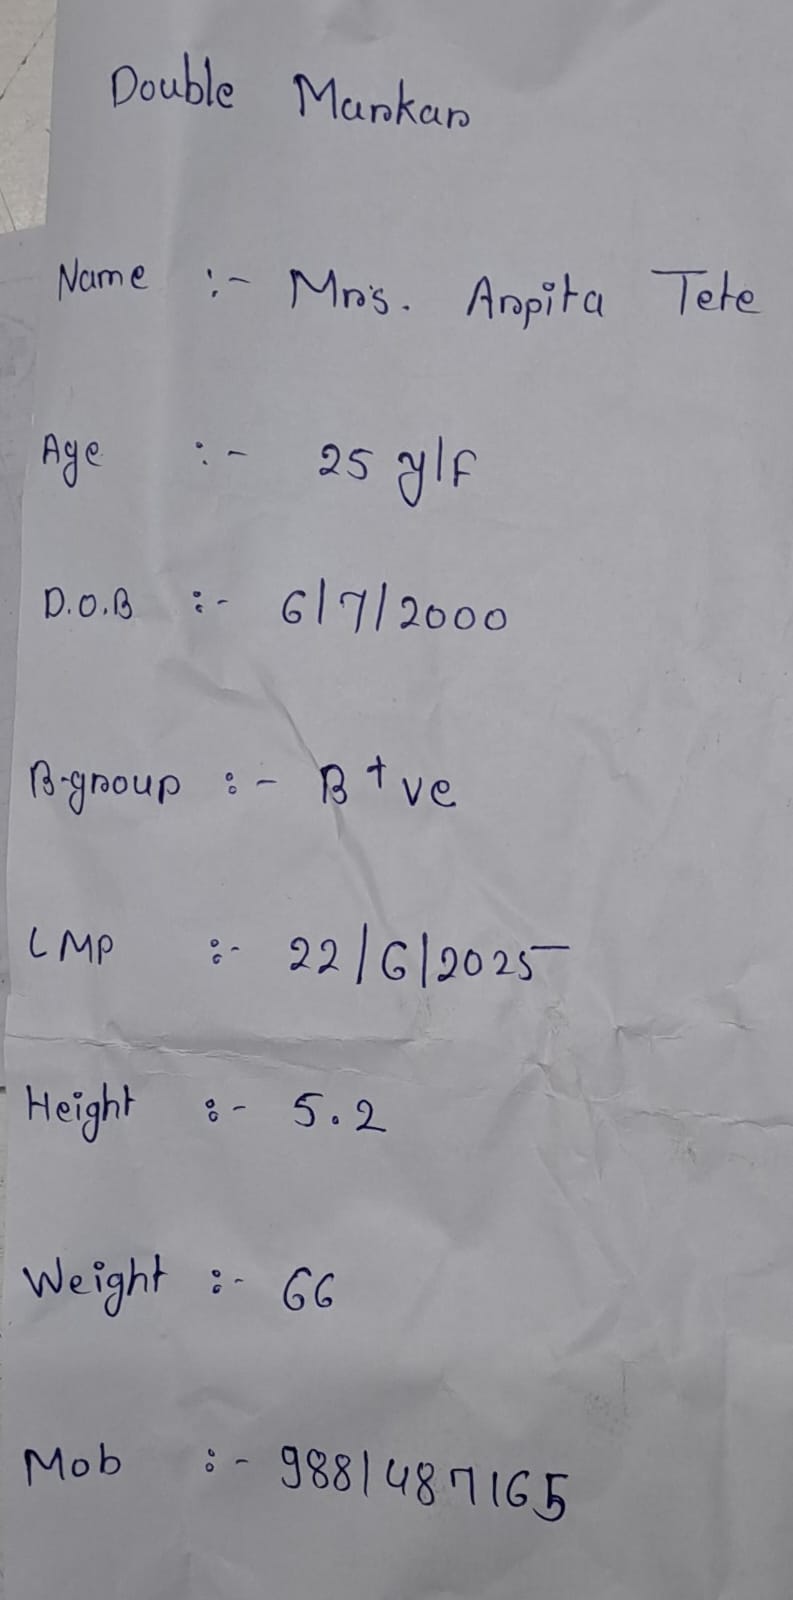 Double Markar
Name :- Mrs. Arpita Tete
Age :- 25 y/F
D.O.B :- 6/7/2000
B-group :- B +ve
LMP :- 22/6/2025
Height :- 5.2
Weight :- 66
Mob :- 9881487165